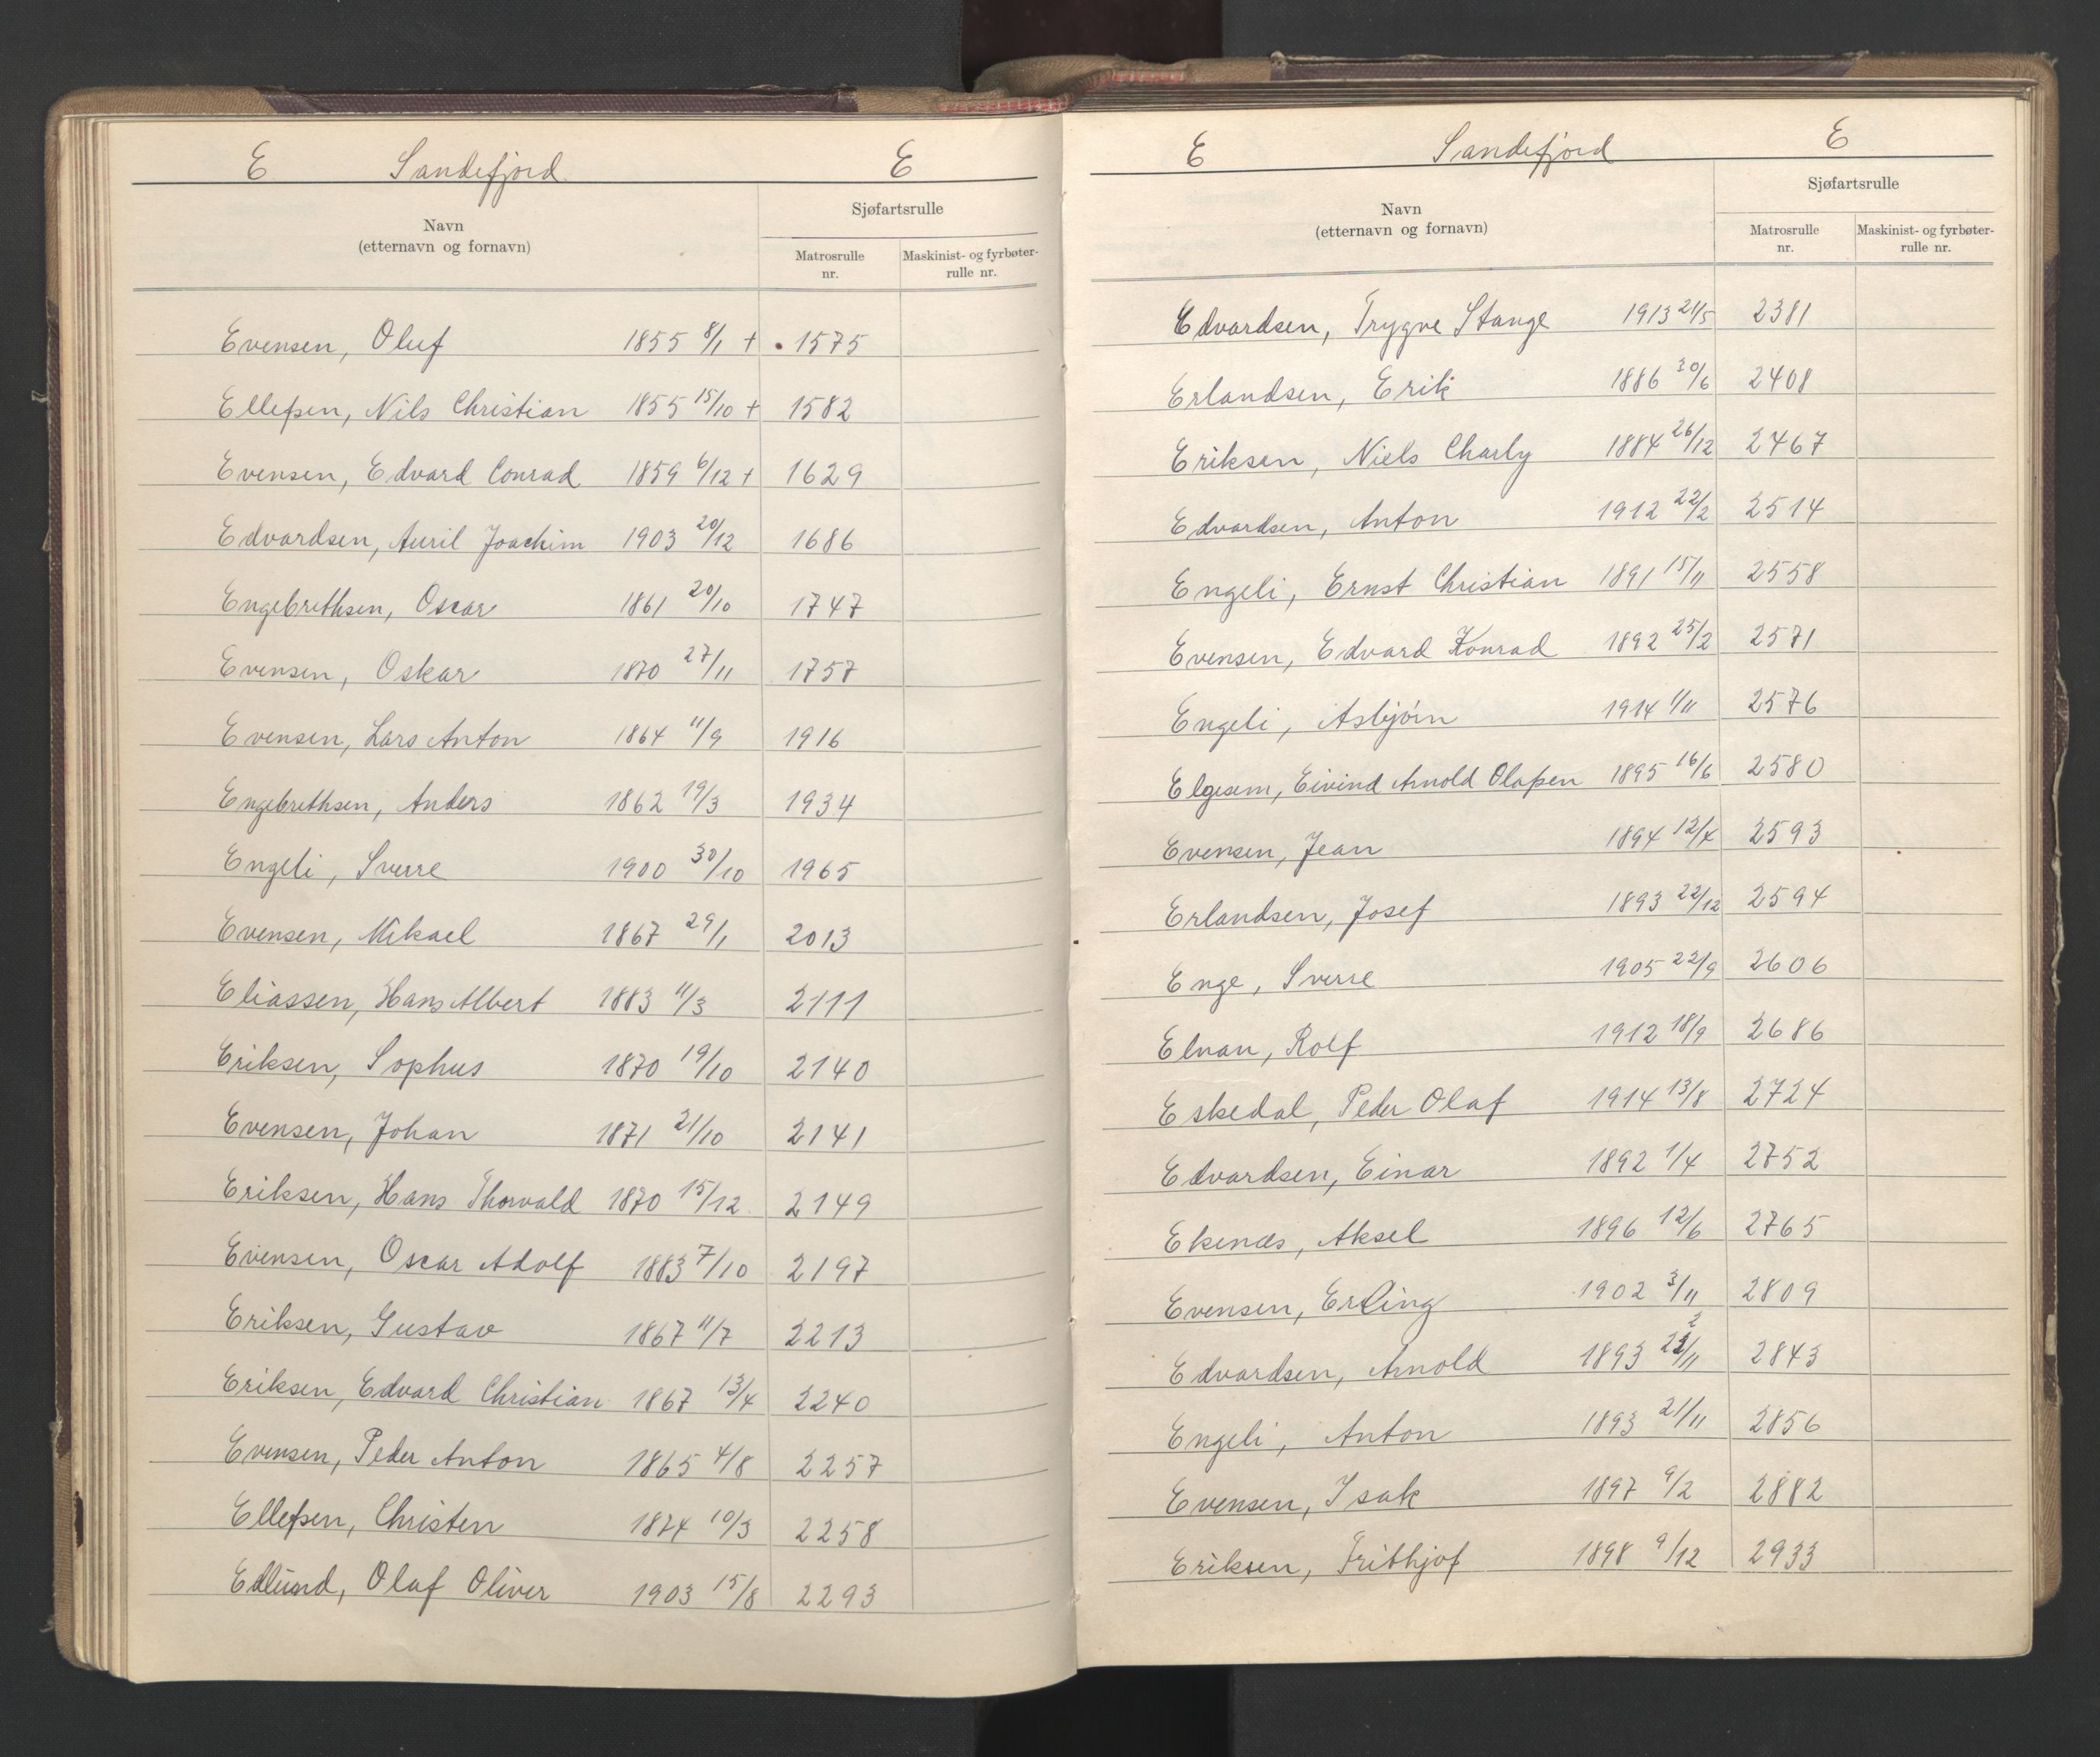 E Sandefjord. E
Navn
(etternavn og fornavn)
Sjøfartsrulle
Matrosrulle
nr.
Maskinist- og fyrbøter-
rulle nr.
Evensen, Oluf 1855 8/1 + 1575
Ellefsen, Nils Christian 1855 15/10 + 1582
Evensen, Edvard Conrad 1859 6/12 + 1629
Edvardsen, Joachim 1903 20/12 1686
Engebrethsen, Oscar 1861 20/10 1747
Evensen, Oskar 1870 27/11 1757
Evensen, Lars Anton 1864 11/9 1916
Engebrethsen, Anders 1862 19/3 1934
Engeli, Sverre 1900 30/10 1965
Evensen, Mikael 1867 29/1 2013
Eliassen, Hans Albert 1883 11/3 2111
Eriksen, Sophus 1870 19/10 2140
Evensen, Johan 1871 21/10 2141
Eriksen, Hans Thorvald 1870 15/12 2149
Evensen, Oscar Adolf 1883 7/10 2197
Eriksen, Gustav 1867 11/7 2213
Eriksen, Edvard Christian 1867 13/4 2240
Evensen, Peder Anton 1865 4/8 2257
Ellefsen, Christen 1874 10/3 2258
Edlund, Olaf Oliver 1903 15/8 2293
E Sandefjord E
Navn
(etternavn og fornavn)
Sjøfartsrulle
Matrosrulle
nr.
Maskinist- og fyrbøter-
rulle nr.
Edvardsen, Trygve Stange 1913 21/5 2381
Erlandsen, Erik 1886 30/6 2408
Eriksen, Niels Charly 1884 26/12 2467
Edvardsen, Anton 1912 22/2 2514
Engeli, Ernst Christian 1891 15/11 2558
Evensen, Edvard Konrad 1892 25/2 2571
Engeli, Asbjörn 1914 1/11 2576
Elgesem, Eivind Arnold Olafsen 1895 16/6 2580
Evensen, Jean 1894 12/4 2593
Erlandsen, Josef 1893 22/12 2594
Enge, Sverre 1905 22/9 2606
Elvan, Rolf 1912 18/9 2686
Eskedal, Peder Olaf 1914 13/8 2724
Edvardsen, Einar 1892 1/4 2752
Ekenæs, Aksel 1896 12/6 2765
Evensen, Erling 1902 3/11 2809
Edvardsen, Arnold 1893 22/11 2843
Engeli, Anton 1893 21/11 2856
Evensen, Isak 1897 9/2 2882
Eriksen, Frithjof 1898 9/12 2933